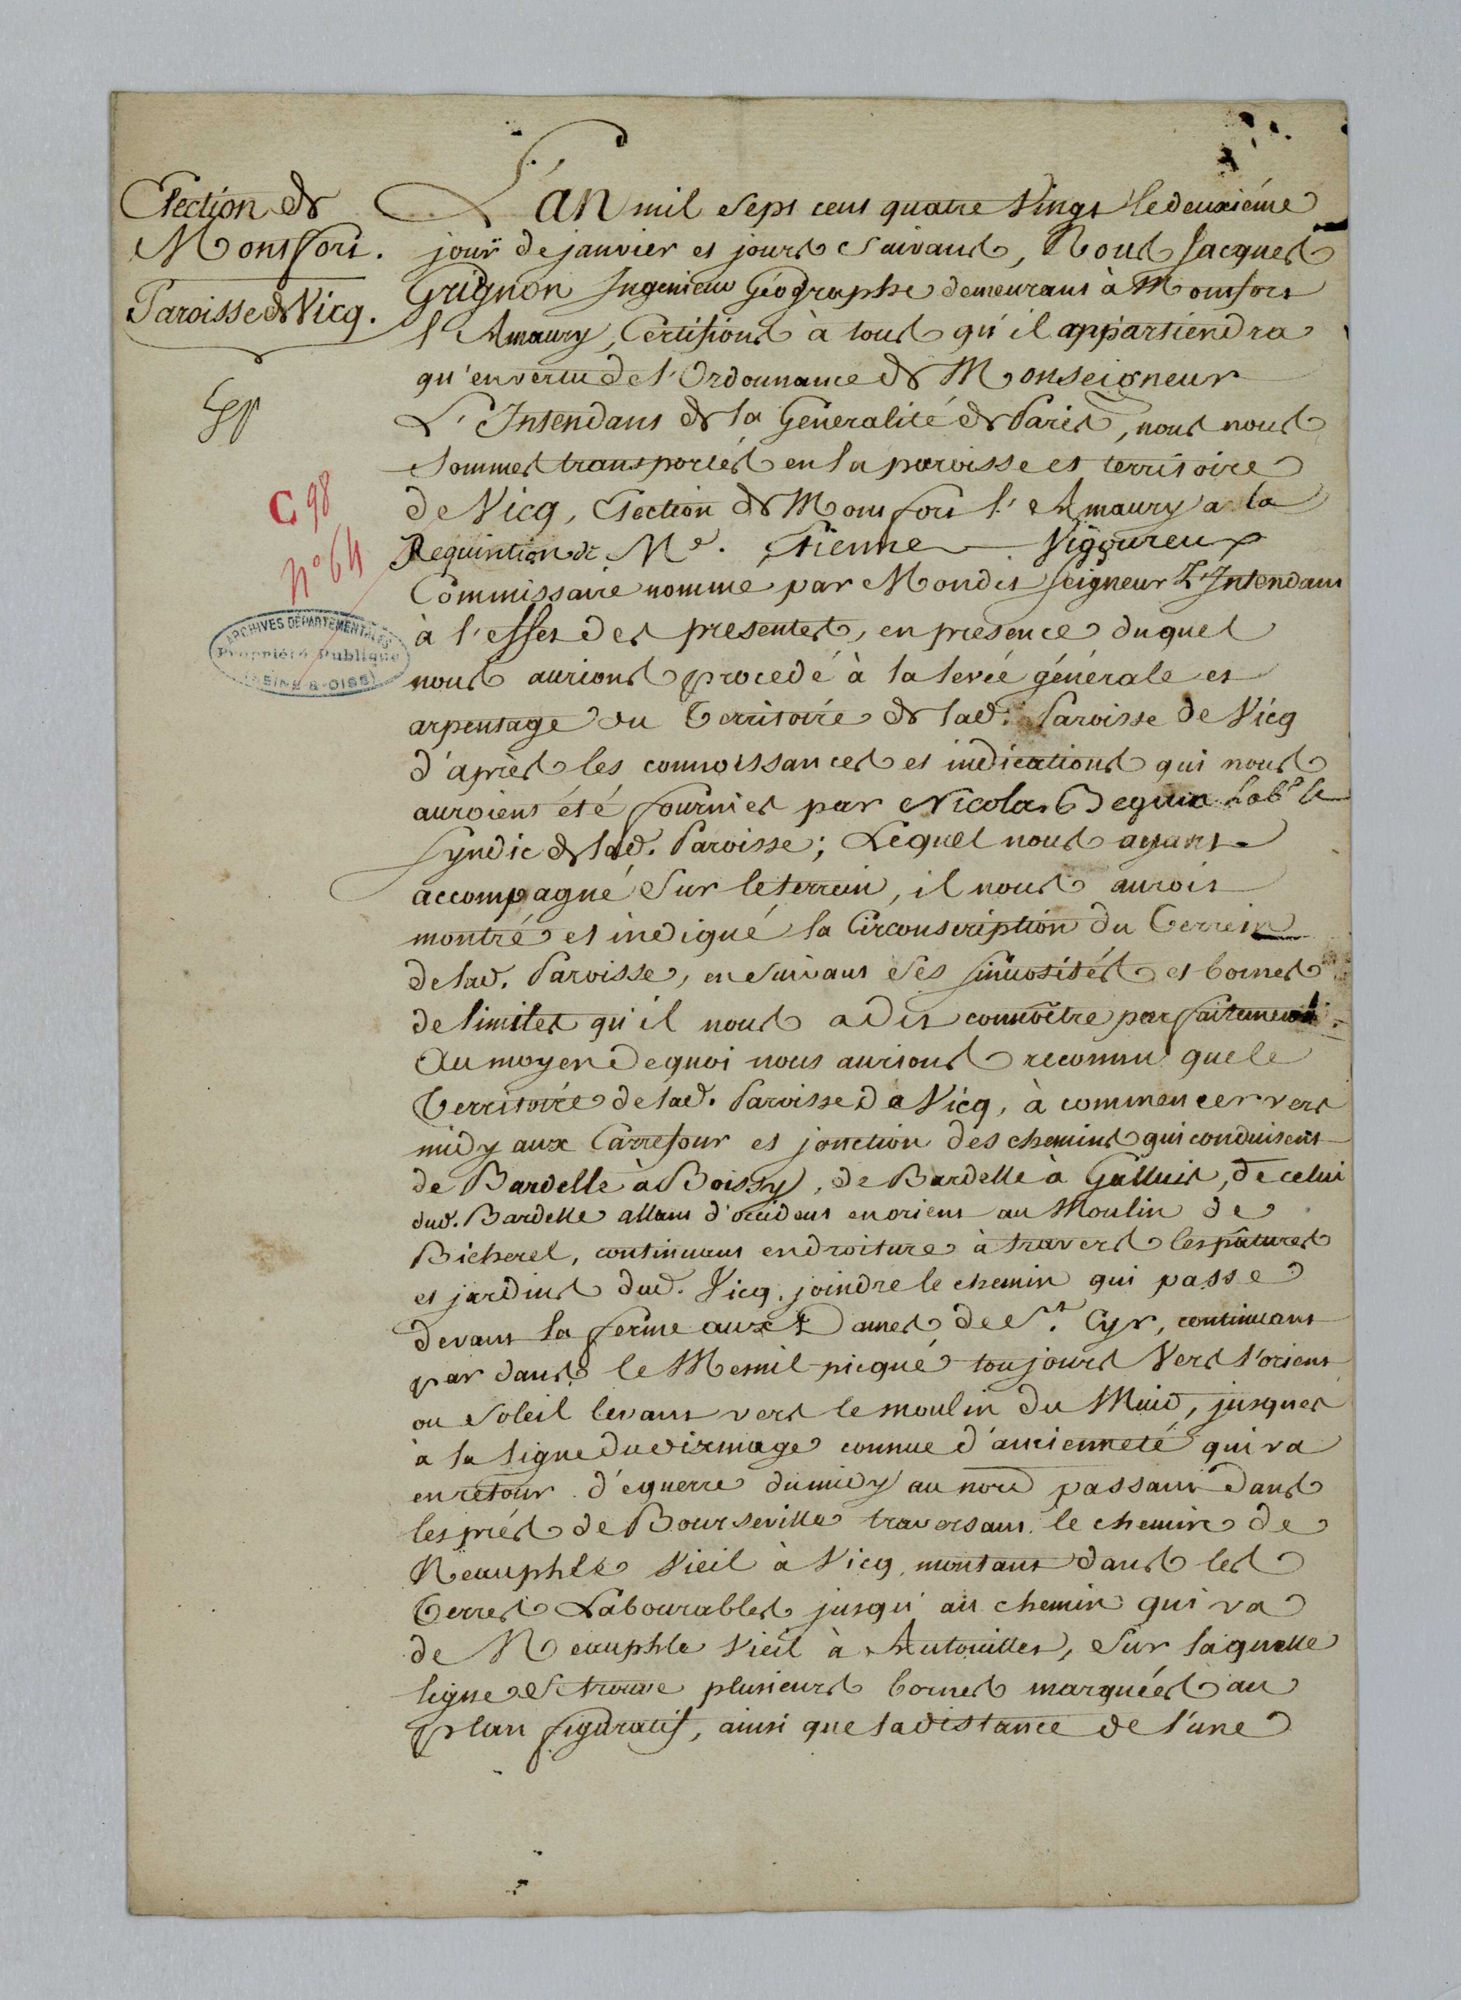 Election de
Montfort.
Paroisse de Vicq.
C 98
n° 64
ARCHIVES DÉPARTEMENTALES
Propriété Publique
(SEINE & OISE)
L'an mil sept cent quatre Vingt le deuxiéme
jour de janvier et jours suivant, Nous Jacques
Grignon Ingenieur Géographe demeurant à Montfort
l'Amaury, Certifions à tous qu'il appartiendra
qu'en vertu de l'Ordonnance de Monseigneur
L'Intendant de la Généralité de Paris, nous nous
sommes transportés en la paroisse et territoire
de Vicq, Election de Montfort l'Amaury a la
Requintion de Me. Etienne Vigoureux
Commissaire nommé par Mondit seigneur L'Intendant
à l'effet des presentes, en presence duquel
nous aurions procedé à la levée générale et
arpentage du Territoire de lad. Paroisse de Vicq
d'après les connoissances et indications qui nous
auroient été fournies par Nicolas Beguin Labr le
syndic de lad. Paroisse; Lequel nous ayant
accompagné sur le terrein, il nous auroit
montré et indiqué la Circonscription du Terrein
de lad. Paroisse, en suivant ses sinuosités et bornes
de limites qu'il nous a dit connoître parfaitement.
Au moyen de quoi nous aurions reconnu que le
Territoire de lad. Paroisse de Vicq, à commencer vers
midy aux Carrefour et jonction des chemins qui conduisent
de Bardelle à Boissy, de Bardelle à Galluis, de celui
dud. Bardelle allant d'occident en orient au Moulin de
Bicherel, continuant en droiture à travers les pâtures
et jardins dud. Vicq, joindre le chemin qui passe
devant la ferme aux Dames de St. Cyr, continuant
par dans le Mesnil-picqué toujours Vers l'orient
ou soleil levant vers le moulin du Muid, jusques
à la ligne du dixmage connue d'ancienneté qui va
en retour d'équerre du midy au nord passant dans
les prés de Bourseville traversant le chemin de
Neauphle Vieil à Vicq, montant dans les
Terres Labourables jusqu'au chemin qui va
de Neauphle Vieil à Autouilles, sur laquelle
ligne se trouve plusieurs bornes marquées au
plan figuratif, ainsi que la distance de l'une